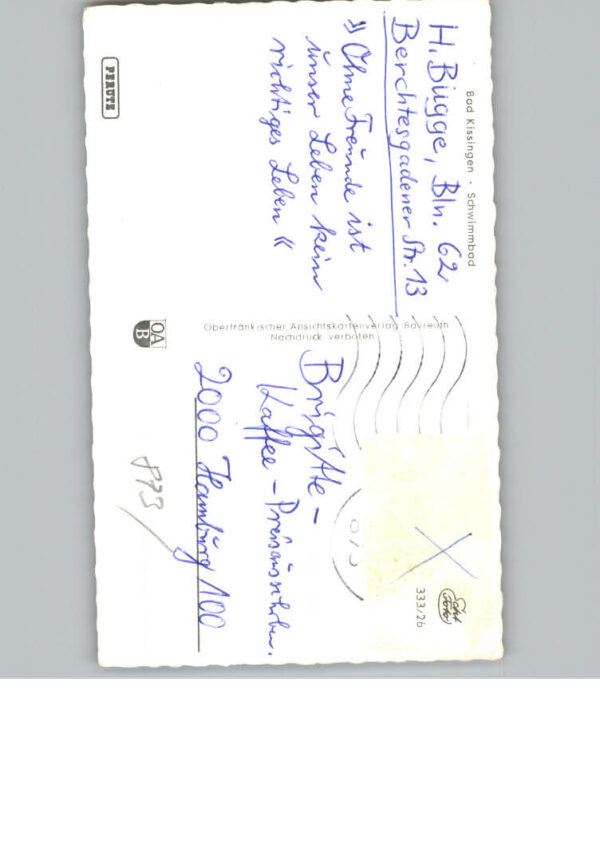 Bad Kissingen · Schwimmbad
H. Bügge, Bln. 62
Berchtesgadener Str. 13
»Ohne Freunde ist
unser Leben kein
richtiges Leben«
PERUTZ
Oberfränkischer Ansichtskartenverlag Bayreuth
Nachdruck verboten
OAB
333/26
Brigitte-
Kaffee-Preisausschrben.
2000 Hamburg 100
873